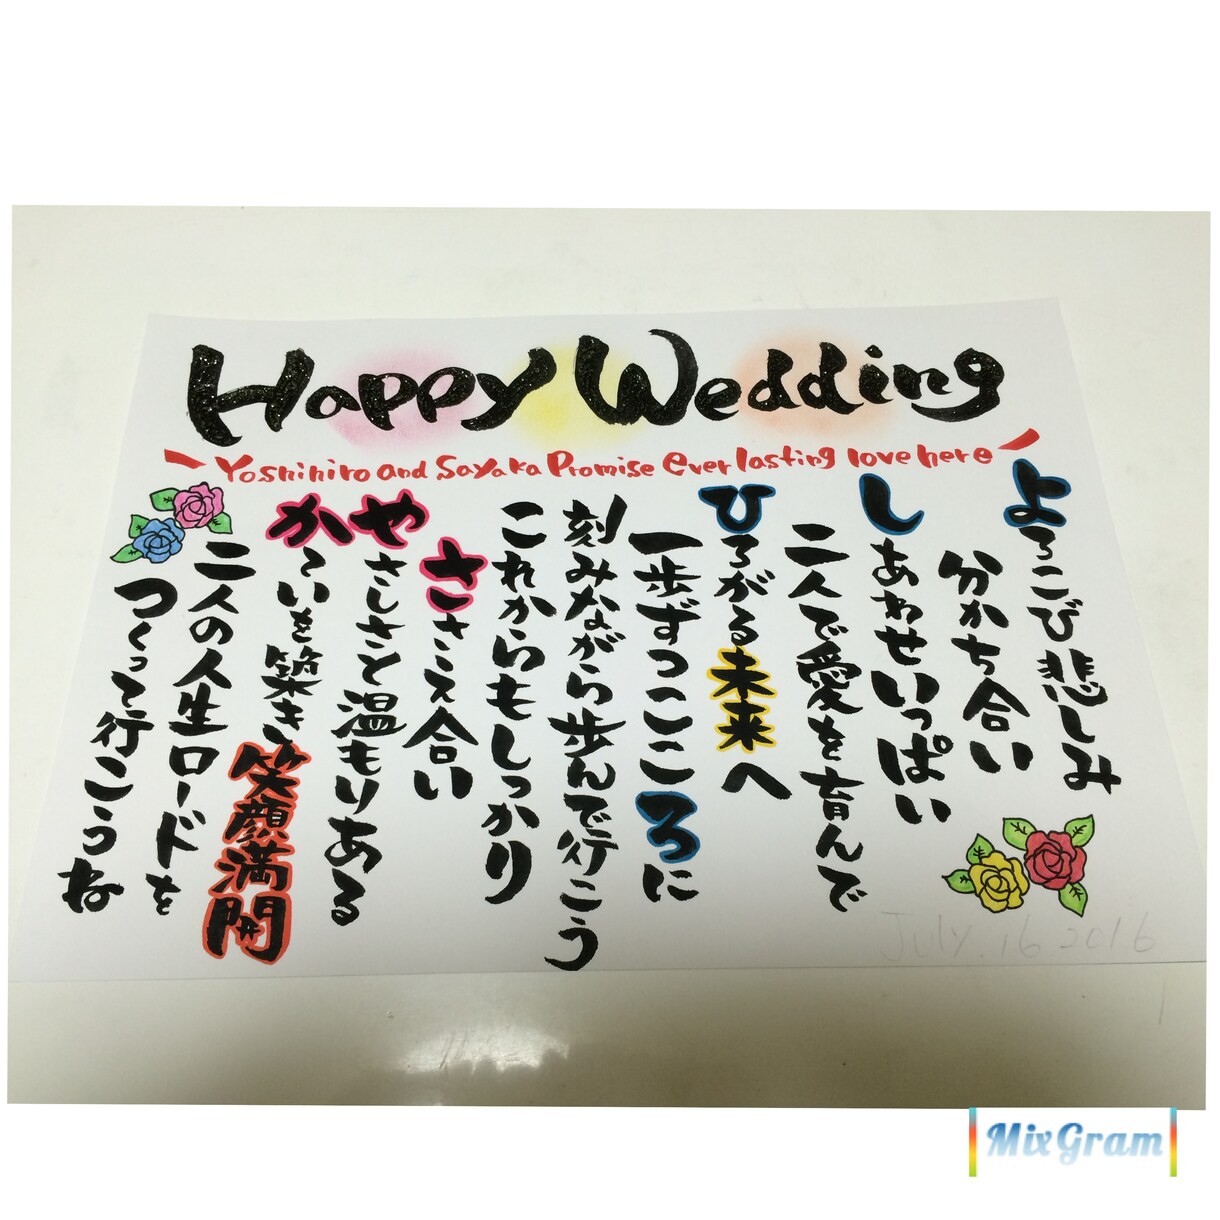 Happy Wedding
Yoshihiro and Sayaka Promise Ever lasting love here
よろこび悲しみ
分かち合い
しあわせいっぱい
二人で愛を育んで
ひろがる未来へ
一歩ずつこころに
刻みながら歩んで行こう
これからもしっかり
ささえ合い
やさしさと温もりある
かていを築き笑顔満開
二人の人生ロードを
つくって行こうね
July.16.2016
MixGram